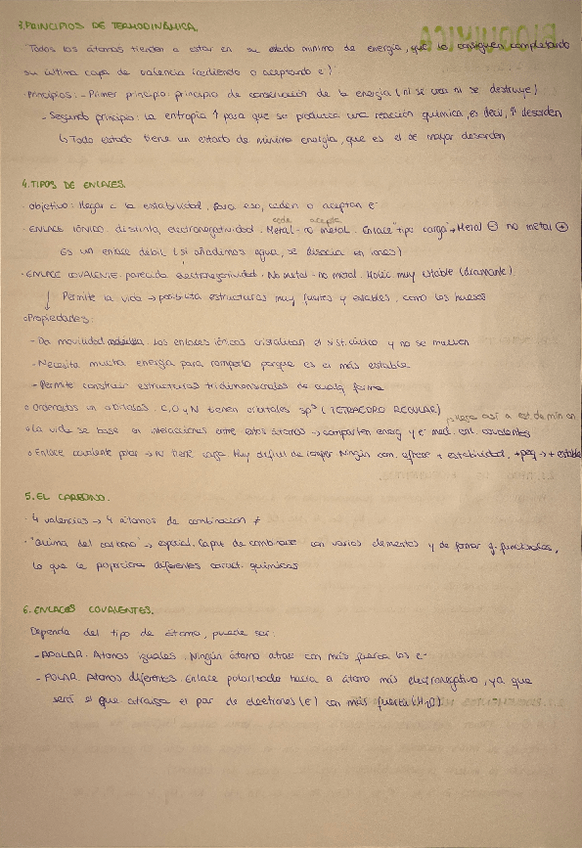 3. PRINCIPIOS DE TERMODINÁMICA.
Todos los átomos tienden a estar en su estado mínimo de energía, que lo consiguen completando
su última capa de valencia (cediendo o aceptando e⁻)
· Principios: - Primer principio: principio de conservación de la energía (ni se crea ni se destruye)
- Segundo principio: la entropía ↑ para que se produzca una reacción química, es decir, ↑ desorden
↳ Todo estado tiene un estado de mínima energía, que es el de mayor desorden
4. TIPOS DE ENLACES.
· Objetivo: llegar a la estabilidad. Para eso, ceden o aceptan e⁻
cede acepta
· ENLACE IÓNICO. distinta electronegatividad. Metal - no metal. Enlace "tipo carga" → Metal ⊖ no metal ⊕
Es un enlace débil (si añadimos agua, se disocia en iones)
· ENLACE COVALENTE. parecida electronegatividad. No metal - no metal. Molec muy estable (diamante).
↓ Permite la vida → posibilita estructuras muy fuertes y estables, como los huesos
Propiedades:
- Da movilidad molecular. Los enlaces iónicos cristalizan el sist. cúbico y no se mueven
- Necesita mucha energía para romperlo porque es el más estable
- Permite construir estructuras tridimensionales de cualq. forma
Ordenados en orbitales. C, O y N tienen orbitales sp³ (TETRAEDRO REGULAR)
↳ llega así a est. de min en
La vida se basa en interacciones entre estos átomos → comparten energ y e⁻ med. enl. covalentes
Enlace covalente polar → N tiene carga muy difícil de romper. Ningún com. ofrece + estabilidad, + peq → + estable
5. EL CARBONO.
· 4 valencias → 4 átomos de combinación ≠
· "Química del carbono" → especial. Capac de combinarse con varios elementos y de formar g. funcionales,
lo que le proporciona diferentes caract. químicas
6. ENLACES COVALENTES.
Depende del tipo de átomo, puede ser:
- APOLAR. Átomos iguales. Ningún átomo atrae con más fuerza los e⁻
- POLAR. Átomos diferentes. Enlace polarizado hacia el átomo más electronegativo, ya que
será el que atraiga el par de electrones (e⁻) con más fuerza (H₂O).